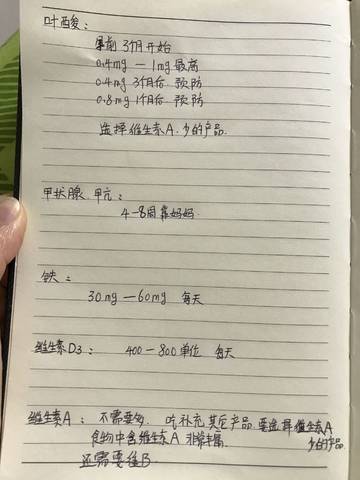 叶酸：
孕前 3个月开始
0.4mg — 1mg 最高
0.4mg 3个月后 预防
0.8mg 1个月后 预防
选择维生素A 少的产品
甲状腺、甲亢：
4-8周靠妈妈
铁：
30mg — 60mg 每天
维生素D3： 400 — 800单位 每天
维生素A： 不需要 吃补充其它产品 要选择维生素A
食物中含维生素A 非常丰富 少的产品
还需要维B